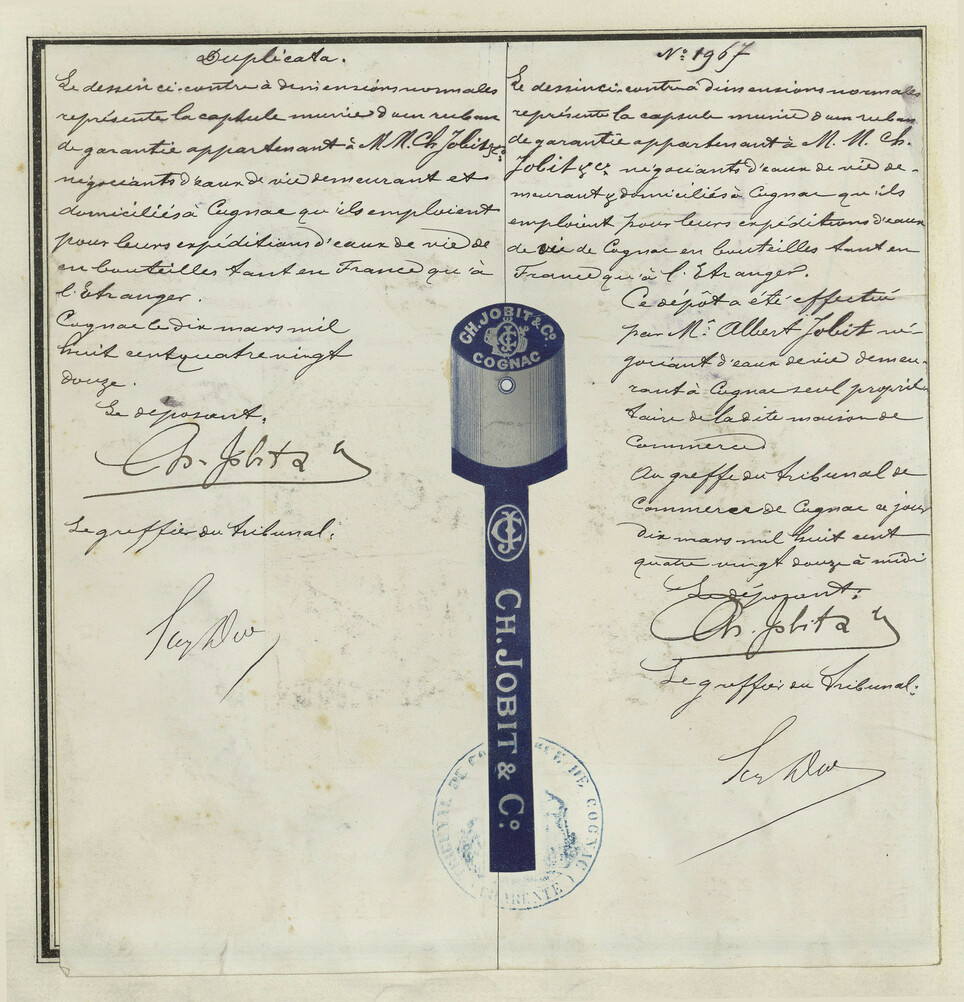 Duplicata.
Le dessin ci-contre à dimensions normales
représente la capsule munie d'un ruban
de garantie appartenant à M.M. Ch. Jobit & Co.
négociants d'eaux de vie demeurant et
domiciliés à Cognac qu'ils emploient
pour leurs expéditions d'eaux de vie de
en bouteilles tant en France qu'à
l'Etranger.
Cognac le dix mars mil
huit cent quatre vingt
douze.
Le déposant.
Ch. Jobit &
Le greffier du tribunal:
No 1967
Le dessin ci-contre à dimensions normales
représente la capsule munie d'un ruban
de garantie appartenant à M. M. Ch.
Jobit & Co. négociants d'eaux de vie de-
meurant & domiciliés à Cognac qu'ils
emploient pour leurs expéditions d'eaux
de vie de Cognac en bouteilles tant en
France qu'à l'Etranger.
Ce dépôt a été effectué
par Mr. Albert Jobit né-
gociant d'eaux de vie demeu-
rant à Cognac seul proprié-
taire de la dite maison de
commerce
Au greffe du tribunal de
Commerce de Cognac ce jour
dix mars mil huit cent
quatre vingt douze à midi
Le déposant:
Ch. Jobit &
Le greffier du tribunal:
CH. JOBIT & Co.
COGNAC
CH. JOBIT & Co.
TRIBUNAL DE COMMERCE DE COGNAC
(CHARENTE)